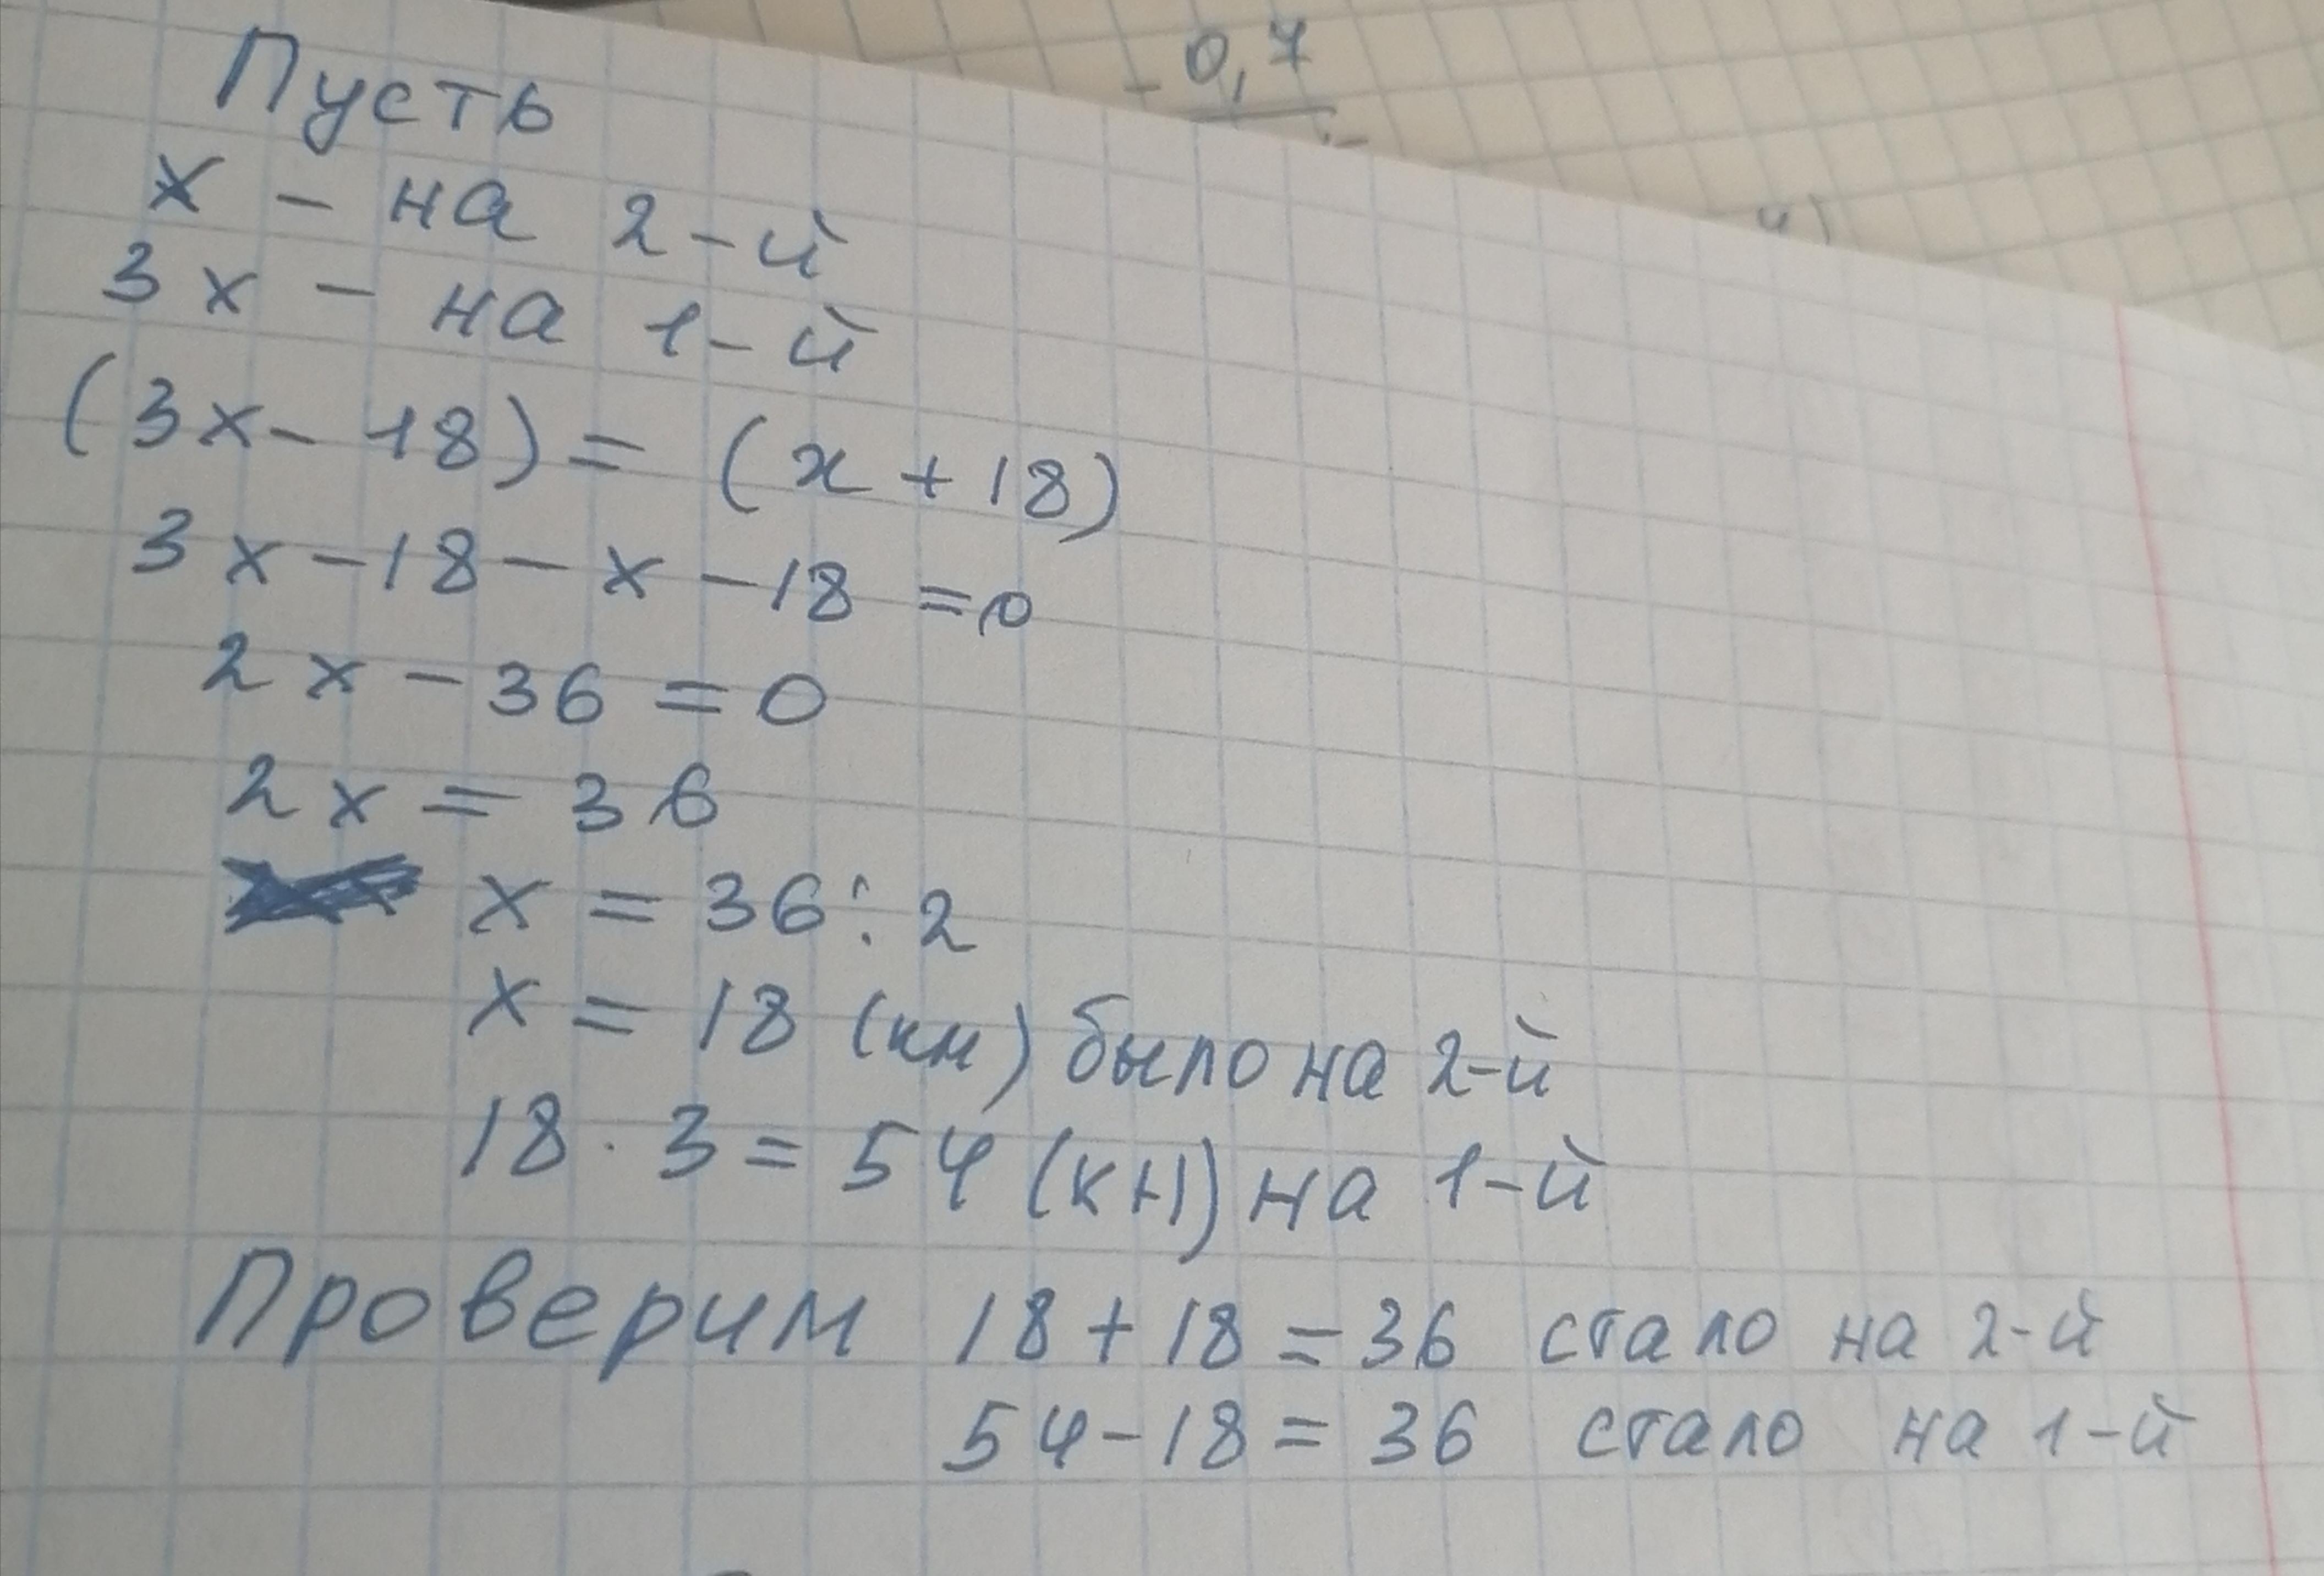 - 0,7
4)
Пусть
x - на 2-й
3x - на 1-й
(3x - 18) = (x + 18)
3x - 18 - x - 18 = 0
2x - 36 = 0
2x = 36
x = 36 : 2
x = 18 (кн) было на 2-й
18 · 3 = 54 (кн) на 1-й
Проверим 18 + 18 = 36 стало на 2-й
54 - 18 = 36 стало на 1-й